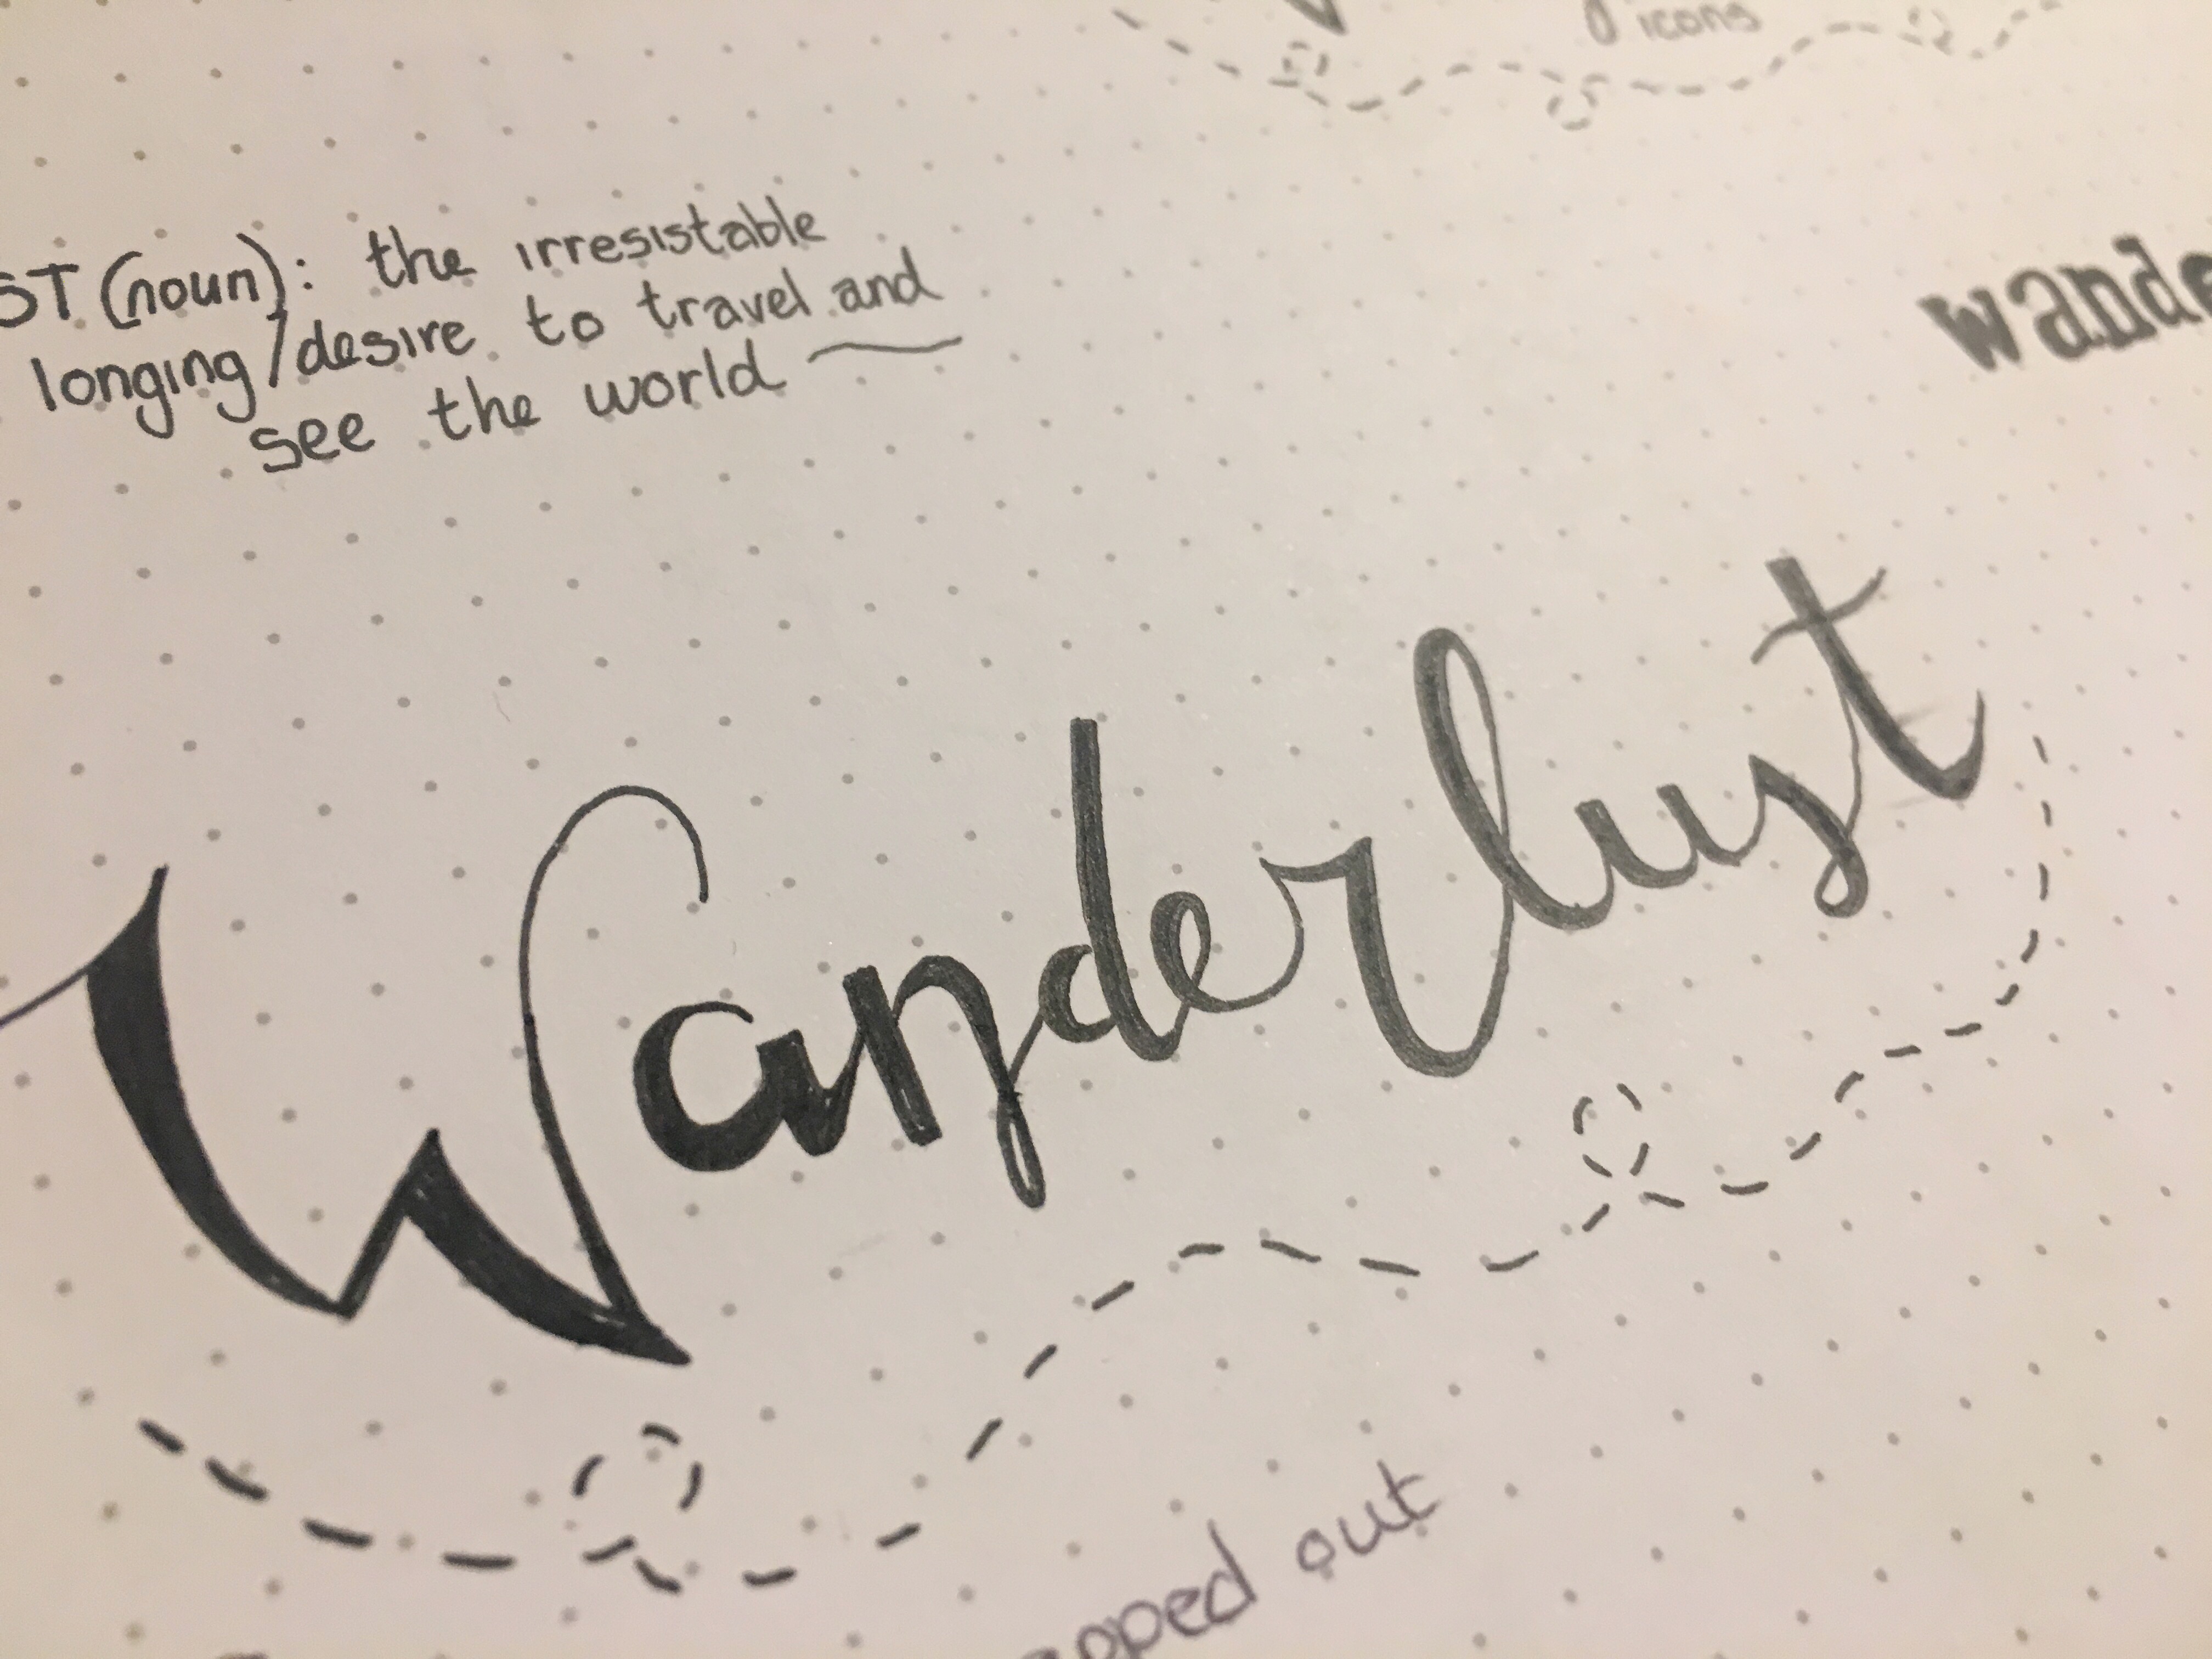 icons
ST (noun): the irresistable
longing/desire to travel and
see the world
wande
Wanderlust
apped out